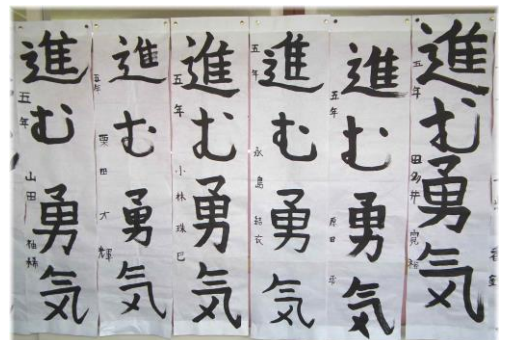 進む勇気
五年
進む勇気
五年 原田
進む勇気
五年 永島 結衣
進む勇気
五年 小林 珠巳
進む勇気
五年 栗田 大輝
進む勇気
五年 山田 柚稀